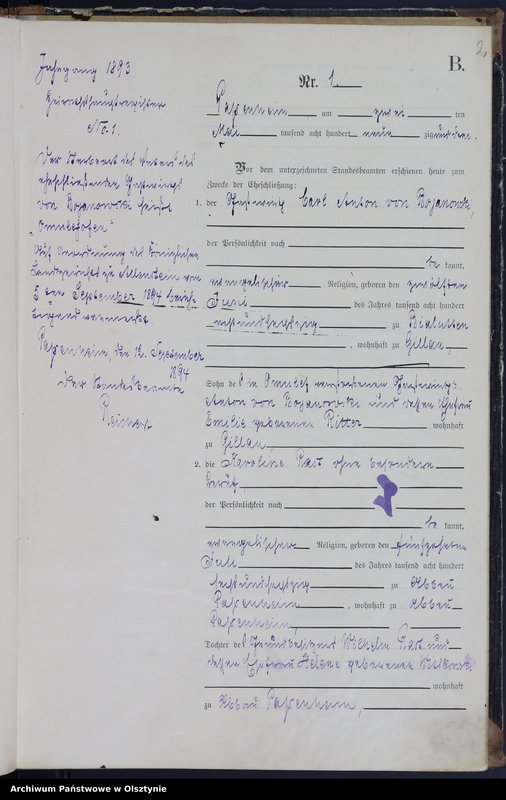 2
B.
Jahrgang 1893
Heirathshauptregister
No. 1.
Der Sterbeort des Vaters des
eheschließenden Gastwirths
von Bojanowski heißt
"Omulefofen"
Auf Anordnung des Königlichen
Landgerichts zu Allenstein vom
5 ten September 1894 berich-
tigend vermerkt.
Passenheim, den 12. September
1894
Der Standesbeamte
Nr. 1.
Passenheim am zwei ten
Mai tausend acht hundert neun zig und drei.
Vor dem unterzeichneten Standesbeamten erschienen heute zum
Zwecke der Eheschließung:
1. der Gastwirth Carl Anton von Bojanowski,
der Persönlichkeit nach
be kannt,
evangelischer Religion, geboren den zwölften
Juni des Jahres tausend acht hundert
zu Bialutten
, wohnhaft zu Gillau,
Sohn des in Omulef verstorbenen Gastwirths
Anton von Bojanowski und dessen Ehefrau
Emilie geborenen Ritter wohnhaft
zu Gillau,
2. die Karoline Rast ohne besondern
Beruf,
der Persönlichkeit nach
be kannt,
evangelischer Religion, geboren den fünfzehnten
Juli des Jahres tausend acht hundert
sechsundsechzig zu Abbau
Passenheim, wohnhaft zu Abbau
Passenheim,
Tochter des Grundbesitzers Wilhelm Rast und
dessen Ehefrau Helene geborenen
wohnhaft
zu Abbau Passenheim,
Archiwum Państwowe w Olsztynie